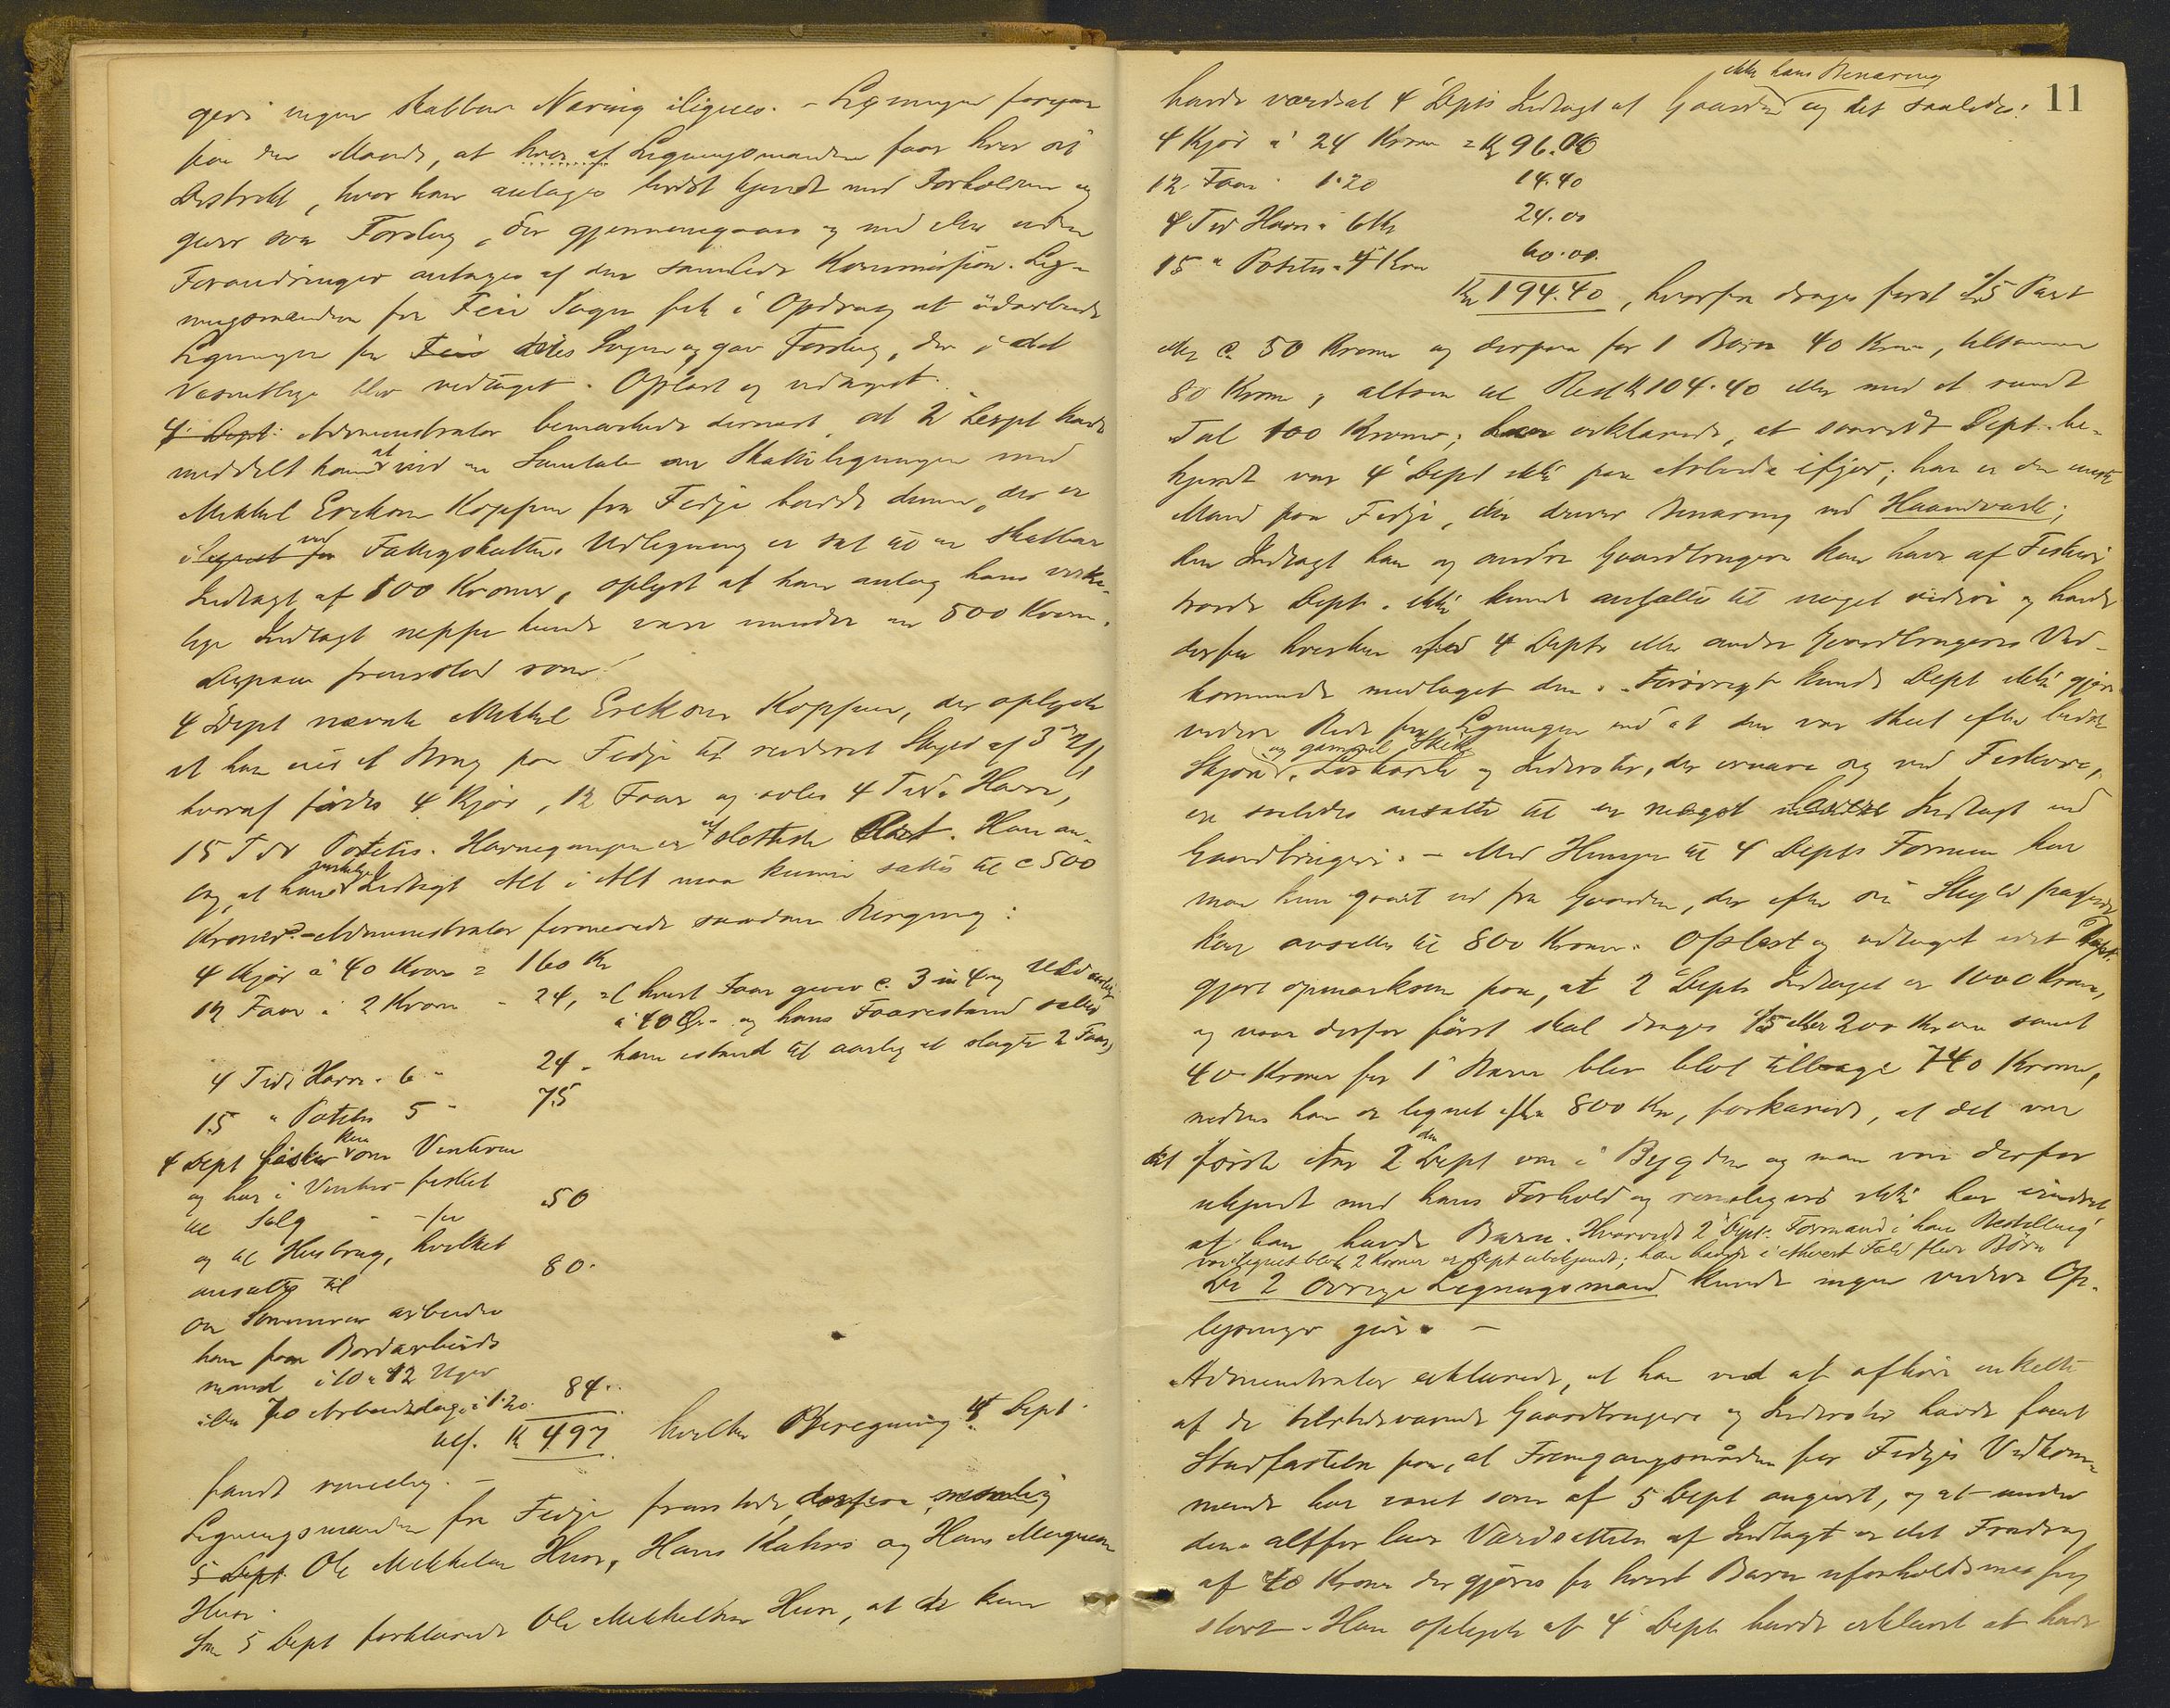 gjøri ingen skatbar Næring ilignes. - Ligningen foregaar
paa den Maade, at hver af Ligningsmændene faar hver sit
Distrikt, hvor han antages bedst kjendt med Forholdene og
giver sine Forslag, der gjennemgaaes og med eller uden
Forandringer antages af den samlede Kommission. Lig-
ningsmanden for Feie Sogn fik i Opdrag at udarbeide
Ligningen for dette Sogn og gav Forslag, der i det
Væsentlige blev vedtaget. Oplæst og vedtaget.
4 Dept: Administrator bemærkede dernæst at 2 Dept havde
meddelt ham at ved en Samtale om Skatteligningen med
Mikkel Erikson Koppen fra Fedje havde denne, der er
ilignet ved Fattigskattens Udligning er sat til en skatbar
Indtægt af 100 Kroner, oplyst at han antog hans virke-
lige Indtægt neppe kunde være mindre en 500 Kroner.
Derpaa fremstod som
4 Dept nævnte Mikkel Erikson Koppen, der oplyste
at han eier et Brug paa Fedje til revideret Skyld af 3
hvoraf fødes 4 Kjør, 12 Faar og avles 4 Tdr. Havre,
15 Tdr Poteter. Havnegangen er af slettest Art. Han an-
tog, at hans Indtægt Alt i Alt maa kunne sættes til c 500
Kroner. - Administrator formerede saadan Beregning:
4 Kjør à 40 Kroner = 160 Kr
12 Faar à 2 Kroner - 24, ( hvert Faar giver c. 3 à 4 Uld aarlig
à 40 Øre og hans Faarestand sætter
4 Tdr Havre à 6 " 24 - ham istand til aarlig at slagte 2 Faar)
15 " Poteter 5 " 75
4 Dept fisker kun om Vinteren
og har i Vinter fisket
til Salg - - for 50
og til Husbrug, hvilket
ansattes til 80.
Om Sommeren arbeider
han som Bordarbeids
mand i 10 à 12 Uger
eller 70 Arbeidsdage à 1.20. 84..
tils. Kr 497 hvilken Beregning 4 Dept.
fandt rimelig. -
Ligningsmændene for Fedje fremstod derpaa nemlig
5 Dept. Ole Mikkelsen Husø, Hans Rahrs og Hans Magnesen
Husø.
Som 5 Dept forklarede Ole Mikkelsen Husø, at de kun
11
ikke hans Benæring
havde værdsat 4 Depts Indtægt af Gaarden og det saaledes:
4 Kjør à 24 Kroner = Kr 96.00
12 Faar " 1.20 14.40
4 Tdr Havre à 6 Kr 24.00
15 " Poteter à 4 Kroner 60.00.
Kr 194.40, hvorfra drages først 1/5 Part
eller c. 50 Kroner og derpaa for 1 Barn 40 Kroner, tilsammen
80 Kroner, altsaa til Rest Kr 104.40 eller med et rundt
Tal 100 Kroner; han erklærede, at saavidt Dept be-
kjendt var 4 Dept ikke paa Arbeide ifjor; han er den eneste
Mand paa Fedje, der driver Benæring ved Haandværk;
den Indtægt han og andre Gaardbrugere kan have af Fiskeri
troede Dept. ikke kunde ansættes til noget videre og havde
derfor hverken for 4 Depts eller andre Gaardbrugeres Ved-
kommende medtaget den. Forøvrigt kunde Dept ikke gjøre
videre Rede for Ligningen end at den var skeet efter bedste
Skjøn og gammel Skik. Løskarle og Inderster, der ernærer sig ved Fiskeri,
er saaledes ansatte til en noget mindre Indtægt end
Gaardbrugere. - Med Hensyn til 4 Depts Formue har
man kun gaaet ud fra Gaarden, der efter sin Skyld passende
kan ansættes til 800 Kroner. Oplæst og vedtaget idet Dept.
gjøres opmærksom paa, at 2 Depts Indtægt er 1000 Kroner,
og naar derfor først skal drages 1/5 eller 200 Kroner samt
40 Kroner for 1 Barn blev blot tilbage 740 Kroner,
medens han er lignet efter 800 Kr, forklarede, at det var
det første Aar 2 den Dept var i Bygden og man var derfor
ukjendt med hans Forhold og rimeligvis ikke har erindret
at han havde Barn. Hvorvidt 2 Depts Formand i hans Bestilling
var lignet blot 2 Kroner er Dept ubekjendt; han havde i ethvert Fald flere Børn
De 2 øvrige Ligningsmænd kunde ingen videre Op-
lysninger give. -
Administrator erklærede, at han ved at afhøre enkelte
af de tilstedeværende Gaardbrugere og Inderster havde faaet
Stadfæstelse paa, at Fremgangsmåden for Fedjes Vedkom-
mende har været som af 5 Dept angivet, og at under
den altfor lave Værdsættelse af Indtægt er det Fradrag
af 40 Kroner der gjøres for hvert Barn uforholdsmæssig
stort. Han oplyste at 4 Dept havde erklæret at have